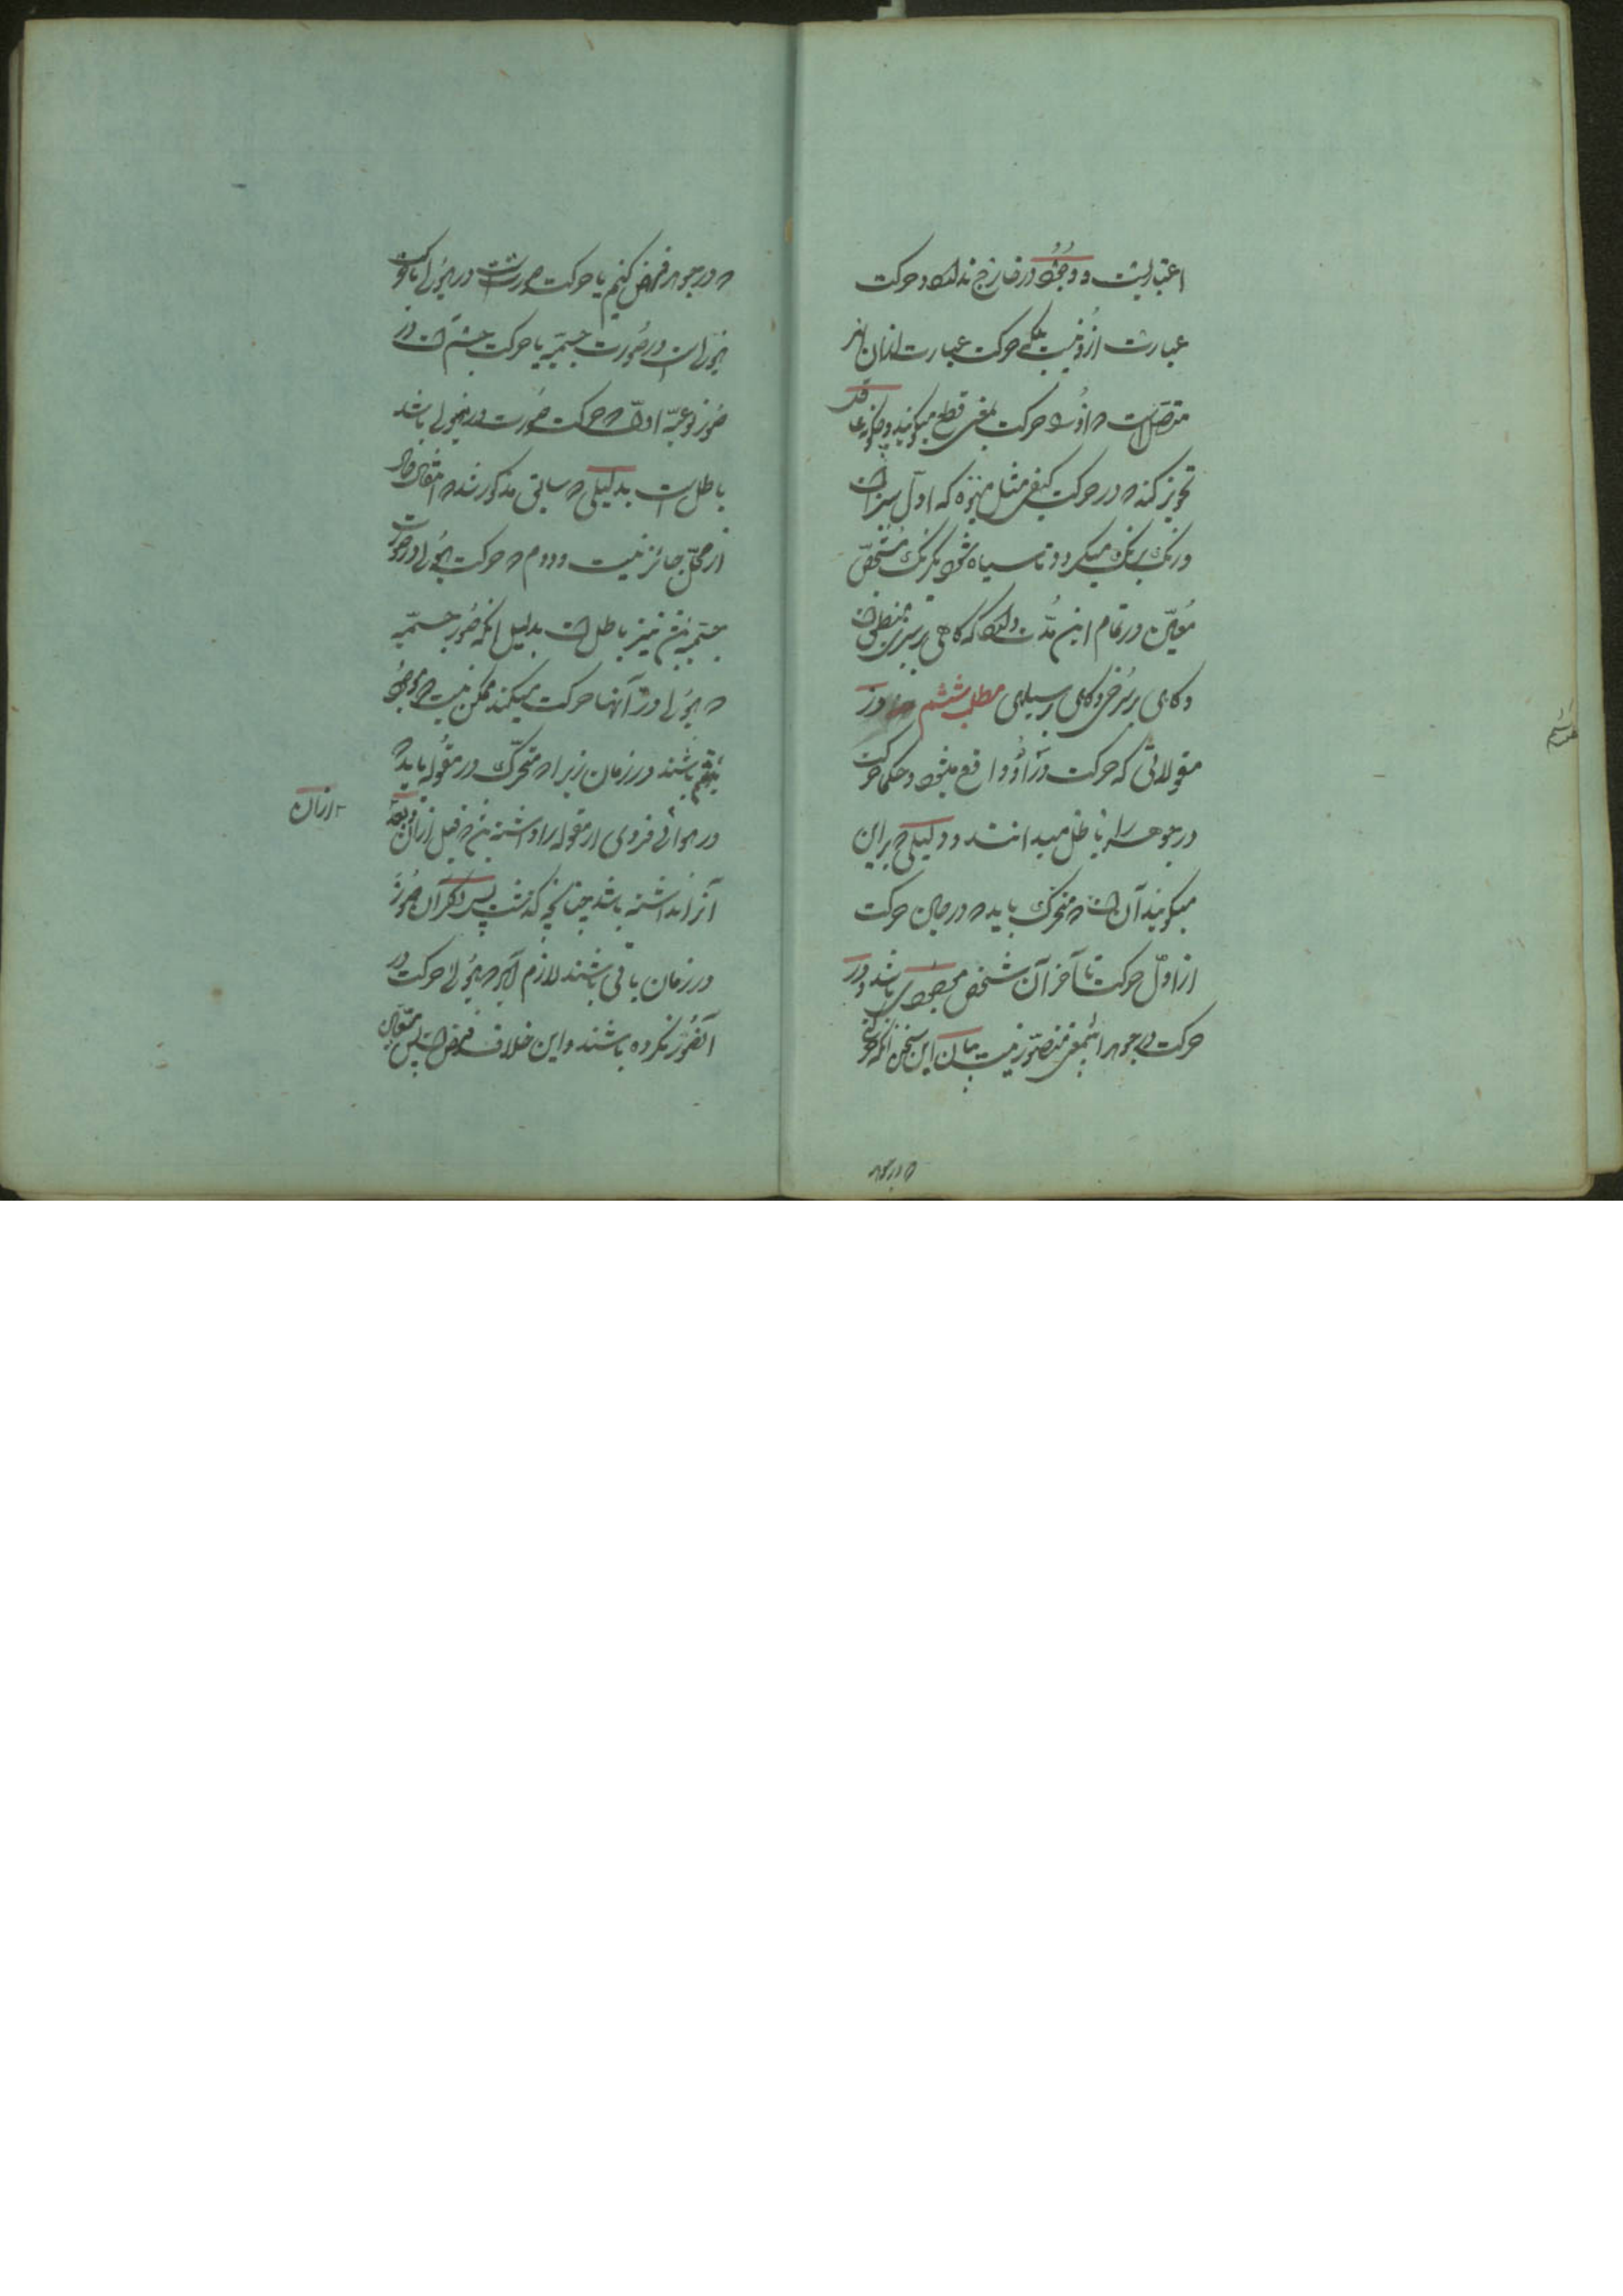 اعتباریست و وجود در خارج ندارد و حرکت
عبارت ازو نیست بلکه حرکت عبارت از آن امر
متصل است که او را حرکت بمعنی قطع میگویند و چگونه عاقل
تجویز کند که در حرکت کیفی مثل میوه که اول سبز است
و رنگ برنگ میگردد تا سیاه شود یکرنگ مشخص
معین در تمام این مدت دارد که گاهی بر سبزی منطبق است
و گاهی بر سرخی و گاهی بر سیاهی مطلب ششم در
مقولاتی که حرکت در او واقع میشود و حکما حرکت
در جوهر را باطل میدانند و دلیلی که بر این
میگویند آن است که متحرک باید که در حین حرکت
از اول حرکت تا آخر آن شخص مخصوصی باشد و در
حرکت در جوهر اینمعنی متصور نیست بیان این سخن آنکه حرکتی
که در جوهر
که در جوهر فرض کنیم یا حرکت صورتست در هیولی یا حرکت
هیولی است در صورت جسمیه یا حرکت جسم است در
صور نوعیه اول که حرکت صورت در هیولی باشد
باطل است بدلیلی که سابق مذکور شد که انتقال حال
از محل جائز نیست و دوم که حرکت هیولی در صورت
جسمیه است نیز باطل است بدلیل آنکه صور جسمیه
که هیولی در آنها حرکت میکند ممکن نیست که موجود
باشند در زمان زیرا که متحرک در مقوله باید که
در هر آنی فردی از مقوله را داشته باشد که قبل از آن و بعد
از آن
آنرا نداشته باشد چنانچه گذشت پس اگر آن صور
در زمان باقی باشند لازم آید که هیولی حرکت در
آنصور نکرده باشند و این خلاف فرض است پس